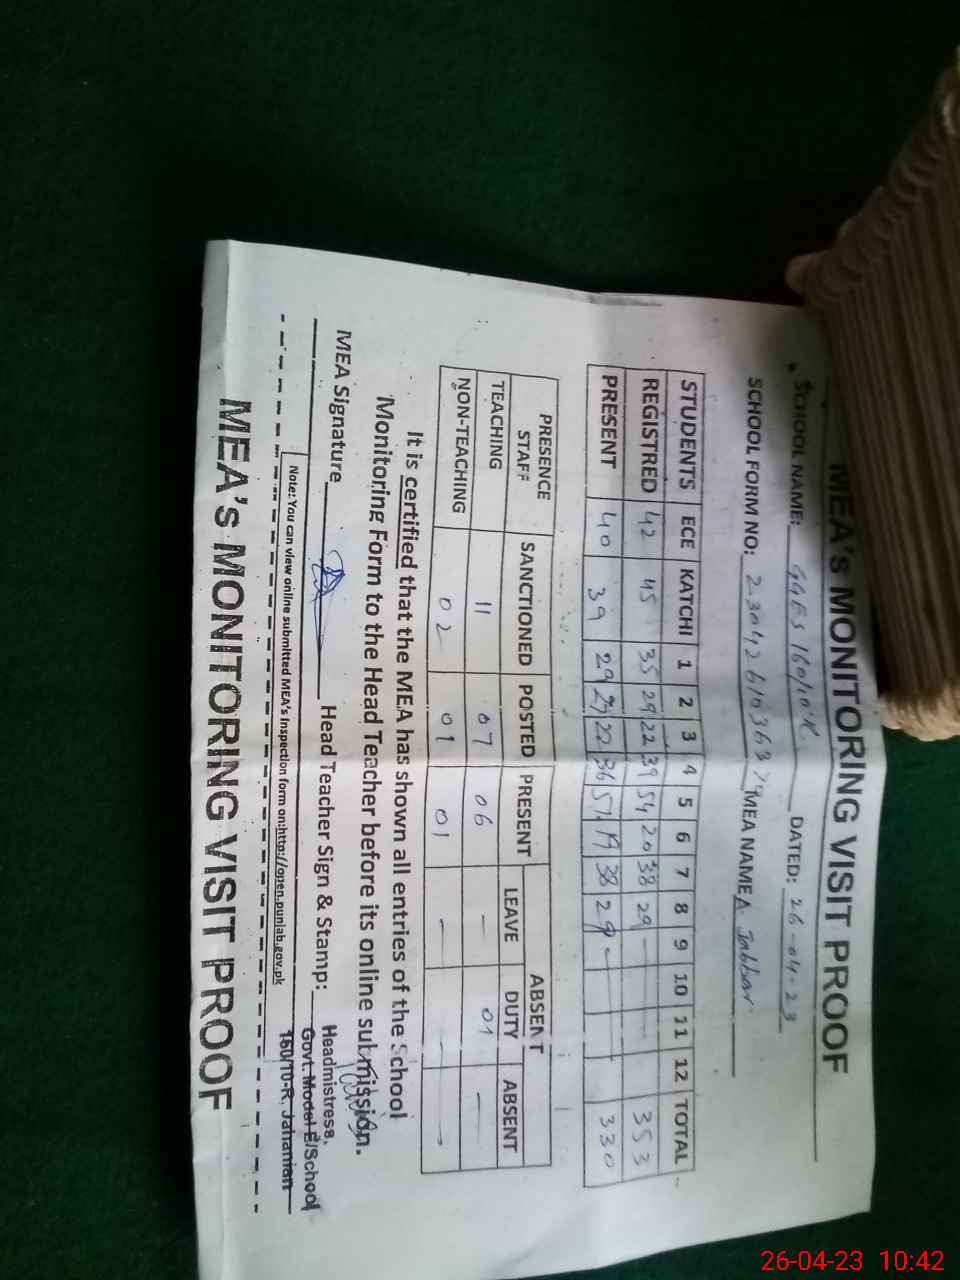 MEA's MONITORING VISIT PROOF
SCHOOL NAME: GGES 160/10R DATED: 26-04-23
SCHOOL FORM NO: MEA NAME A. Jabbar
STUDENTS ECE KATCHI 1 2 3 4 5 6 7 8 9 10 11 12 TOTAL
REGISTRED 42 45 35 29 22 39 54 20 38 29 - 353
PRESENT 40 39 29 27 22 36 51 19 38 29 - 330
PRESENCE STAFF SANCTIONED POSTED PRESENT ABSENT
LEAVE DUTY ABSENT
TEACHING 11 07 06 - 01 -
NON-TEACHING 02 01 01 - - -
It is certified that the MEA has shown all entries of the School
Monitoring Form to the Head Teacher before its online submission.
MEA Signature Head Teacher Sign & Stamp:
Headmistress,
Govt. Model E/School
160/10-R, Jahanian
Note: You can view online submitted MEA's Inspection form on:http://open.punjab.gov.pk
MEA's MONITORING VISIT PROOF
26-04-23 10:42